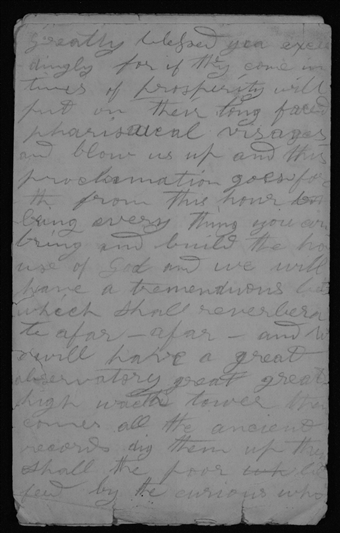 greatly blessed yea excee
dingly for if they come in
times of prosperity will
put on their long faced
pharisaical visages
and blow us up and this
proclamation goes for
th from this hour
bring every thing you can
bring and build the ho
use of God and we will
have a tremendious
which shall reverbera
te afar - afar - and
will have a great
observatory great great
high watch tower
comes all the ancient
records dig them up
shall the poor
fed by the curious who